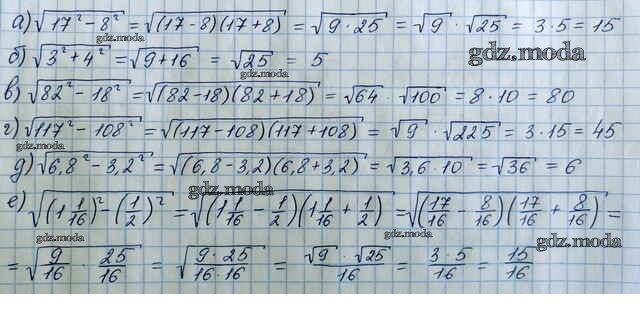 а) √(17² - 8²) = √((17 - 8)(17 + 8)) = √(9 · 25) = √9 · √25 = 3 · 5 = 15
gdz.moda
б) √(3² + 4²) = √(9 + 16) = √25 = 5
gdz.moda
gdz.moda
в) √(82² - 18²) = √((82 - 18)(82 + 18)) = √64 · √100 = 8 · 10 = 80
gdz.moda
г) √(117² - 108²) = √((117 - 108)(117 + 108)) = √9 · √225 = 3 · 15 = 45
gdz.moda
д) √(6,8² - 3,2²) = √((6,8 - 3,2)(6,8 + 3,2)) = √(3,6 · 10) = √36 = 6
gdz.moda
е) √((1 1/16)² - (1/2)²) = √((1 1/16 - 1/2)(1 1/16 + 1/2)) = √((17/16 - 8/16)(17/16 + 8/16)) =
gdz.moda
gdz.moda
= √(9/16 · 25/16) = √((9 · 25)/(16 · 16)) = (√9 · √25)/16 = (3 · 5)/16 = 15/16